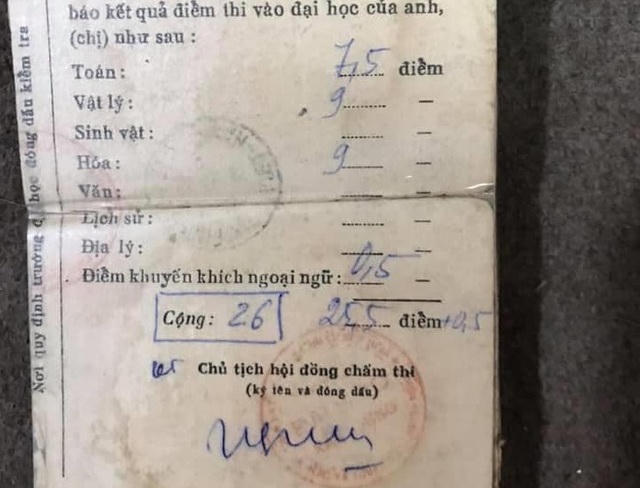 báo kết quả điểm thi vào đại học của anh,
(chị) như sau :
Toán: 7,5 điểm
Vật lý: 9 —
Sinh vật: —
Hóa: 9 —
Văn: —
Lịch sử: —
Địa lý: —
Điểm khuyến khích ngoại ngữ: 0,5 —
Cộng: 26 25,5 điểm +0,5
Chủ tịch hội đồng chấm thi
(ký tên và đóng dấu)
Nơi quy định trường đại học đóng dấu kiểm tra